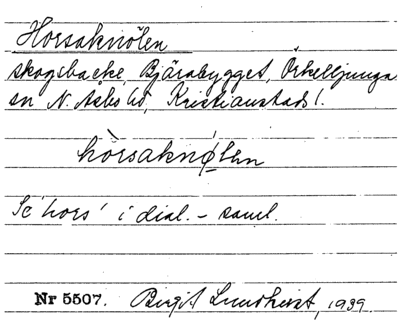 Horsaknölen
skogsbacke, Bjärabygget, Örkelljunga
sn N. Åsbo hd, Kristianstads l.
hòrsaknǿlen
Se 'hors' i dial. - saml.
Nr 5507. Birgit Lundkvist, 1939.